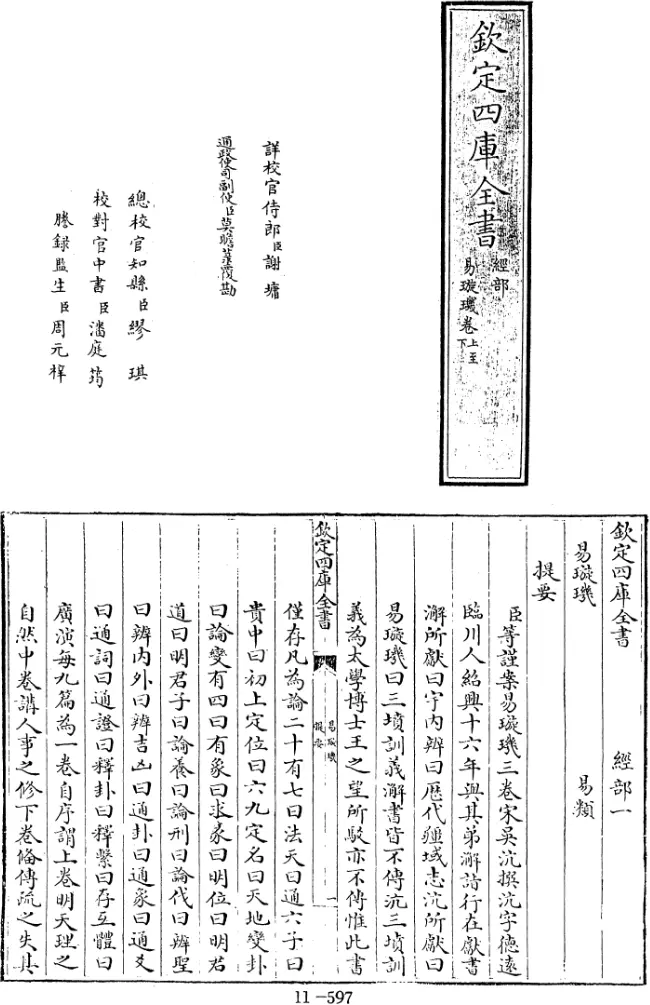 欽定四庫全書
經部
易璇璣卷上至下
詳校官侍郎臣謝墉
通政使司副使臣莫瞻菉覆勘
總校官知縣臣繆琪
校對官中書臣潘庭筠
謄錄監生臣周元梓
欽定四庫全書　經部一
易璇璣　易類
提要
臣等謹案易璇璣三卷宋吳沆撰沆字德遠
臨川人紹興十六年與其弟澥詣行在獻書
澥所獻曰宇內辨曰歷代疆域志沆所獻曰
易璇璣曰三墳訓義澥書皆不傳沆三墳訓
義為太學博士王之望所駁亦不傳惟此書
欽定四庫全書
易璇璣
提要
一
僅存凡為論二十有七曰法天曰通六子曰
貴中曰初上定位曰六九定名曰天地變卦
曰論變有四曰有象曰求彖曰明位曰明君
道曰明君子曰論養曰論刑曰論伐曰辨聖
曰辨內外曰辨吉凶曰通卦曰通彖曰通爻
曰通詞曰通證曰釋卦曰釋繫曰存互體曰
廣演每九篇為一卷自序謂上卷明天理之
自然中卷講人事之修下卷備傳疏之失其
11-597